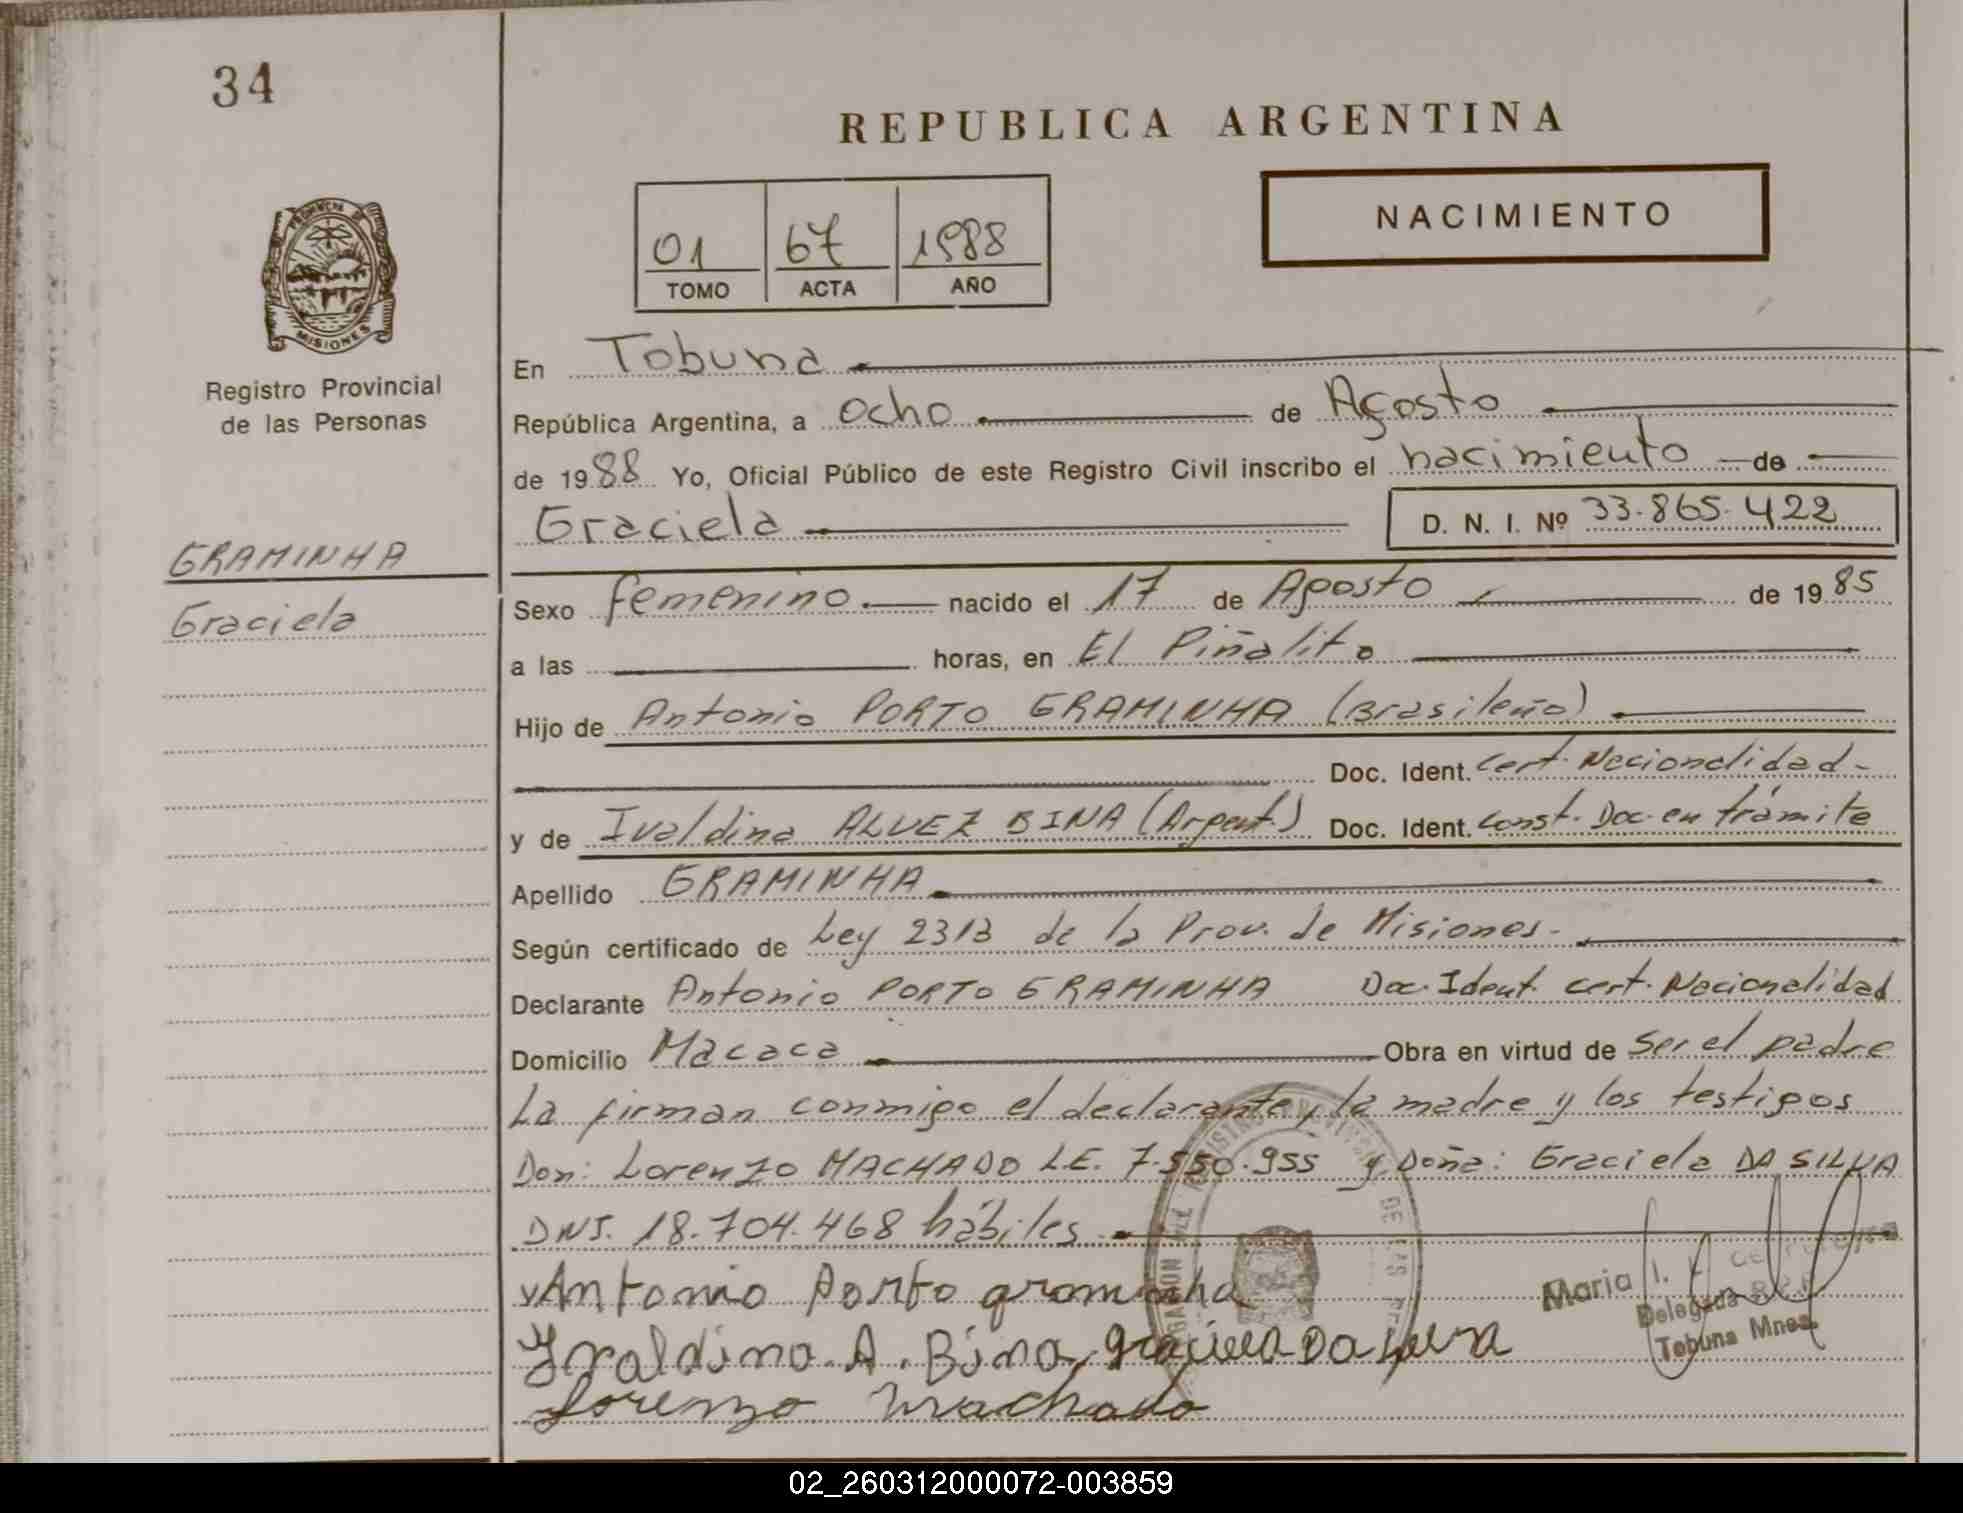 34
REPUBLICA ARGENTINA
NACIMIENTO
01 67 1988
TOMO ACTA AÑO
PROVINCIA DE
MISIONES
Registro Provincial
de las Personas
GRAMINHA
Graciela
En Tobuna
República Argentina, a ocho de Agosto
de 1988 Yo, Oficial Público de este Registro Civil inscribo el nacimiento de
Graciela D. N. I. Nº 33.865.422
Sexo femenino nacido el 17 de Agosto de 1985
a las horas, en El Piñalito
Hijo de Antonio PORTO GRAMINHA (Brasileño)
Doc. Ident. Cert. Nacionalidad
y de Ivaldina ALVEZ BINA (Argent.) Doc. Ident. Const. Doc. en trámite
Apellido GRAMINHA
Según certificado de Ley 2313 de la Prov. de Misiones
Declarante Antonio PORTO GRAMINHA Doc. Ident. cert. Nacionalidad
Domicilio Macaca Obra en virtud de ser el padre
La firman conmigo el declarante, la madre y los testigos
Don: Lorenzo MACHADO L.E. 7.550.955 y Doña: Graciela DA SILVA
DNI. 18.704.468 hábiles
Antonio Porto graminha
Ivaldina A. Bina
Lorenzo Machado
Maria I.
Delegada
Tobuna Mnes.
02_260312000072-003859